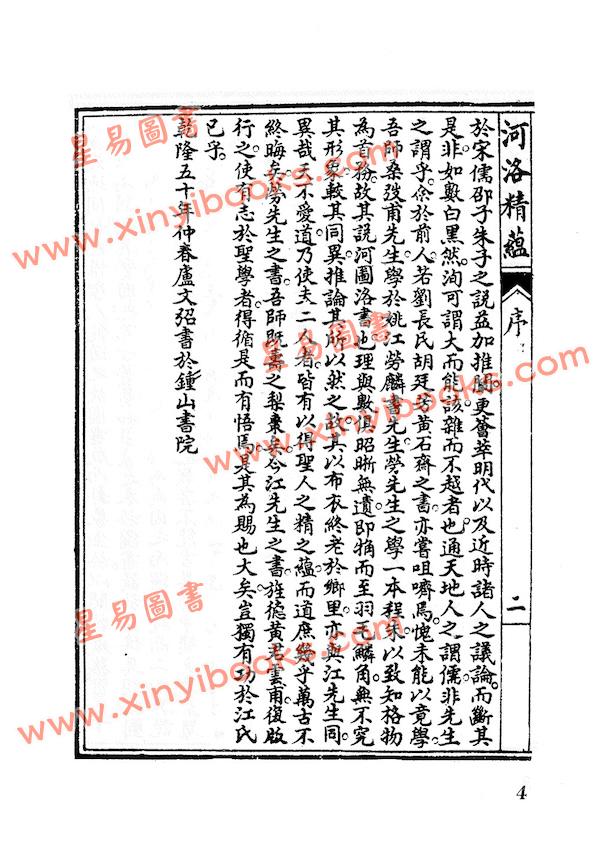 河洛精蘊
序
二
於宋儒邵子朱子之說益加推闡更薈萃明代以及近時諸人之議論而斷其
是非如數白黑然洵可謂大而能該雜而不越者也通天地人之謂儒非先生
之謂乎余於前人若劉長民胡廷芳黃石齋之書亦嘗咀嚌焉愧未能以竟學
吾師桑弢甫先生學於姚江勞麟書先生勞先生之學一本程朱以致知格物
為首務故其說河圖洛書也理與數俱昭晰無遺即狗而至羽毛鱗角無不究
其形象較其同異推論其所以然之故其以布衣終老於鄉里亦與江先生同
異哉天不愛道乃使夫二人者皆有以得聖人之精之蘊而道庶幾乎萬古不
終晦矣勞先生之書吾師既壽之梨棗矣今江先生之書旌德黃君雲甫復版
行之使有志於聖學者得循是而有悟焉是其為賜也大矣豈獨有功於江氏
已乎
乾隆五十年仲春盧文弨書於鍾山書院
星易圖書
www.xinyibooks.com
星易圖書
www.xinyibooks.com
星易圖書
www.xinyibooks.com
4